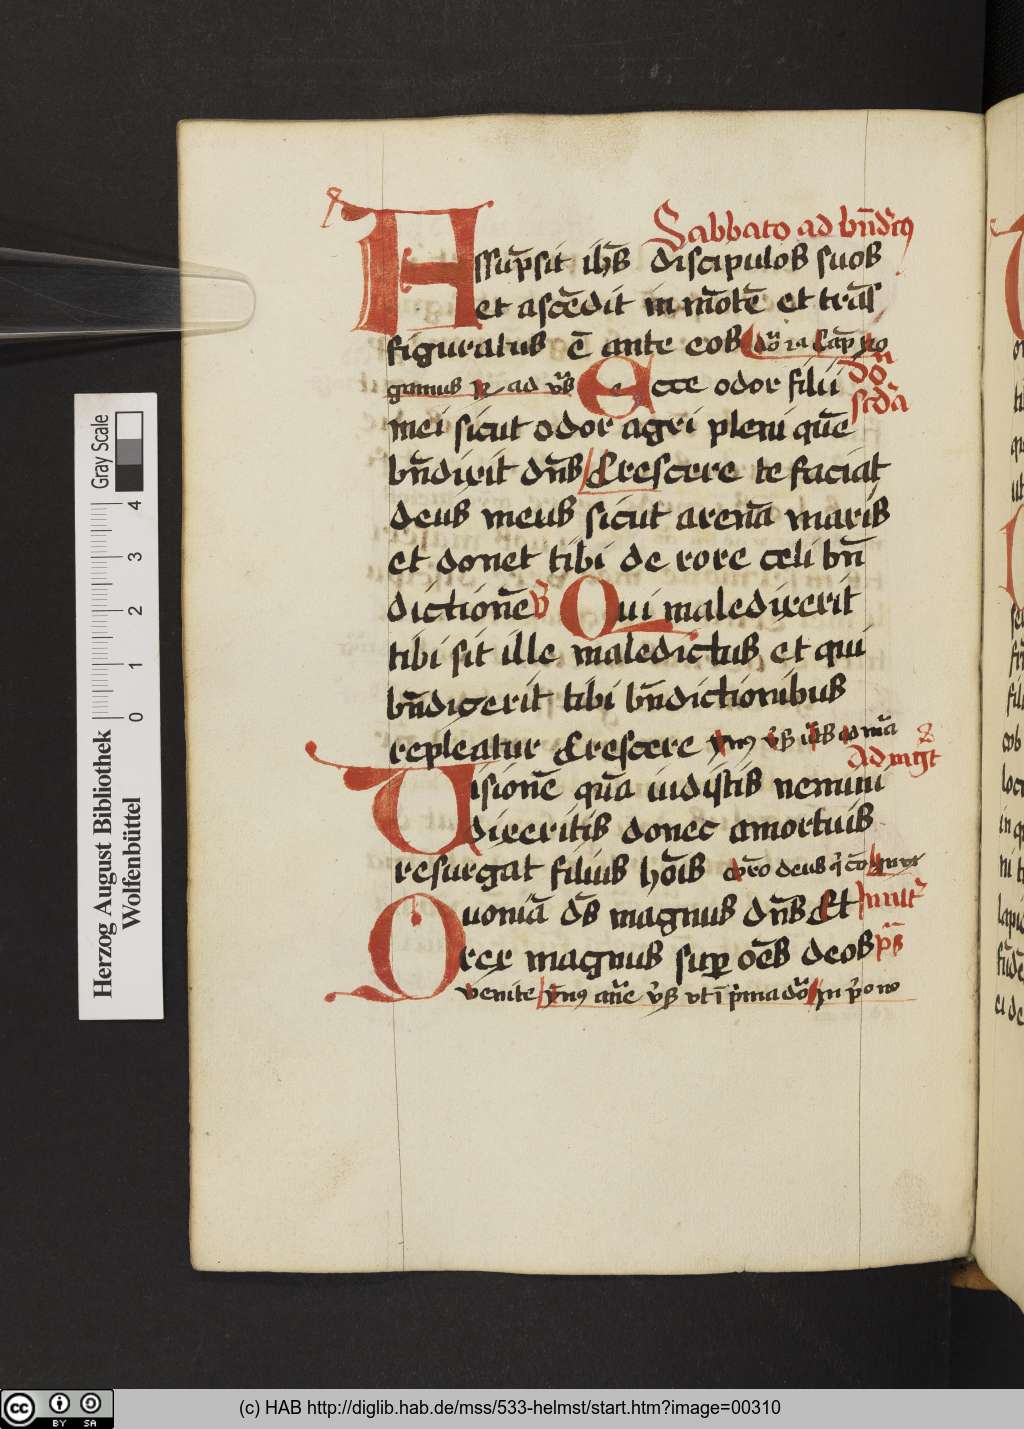 Sabbato ad bn̄dic̄ꝰ
Assūpsit ih̄s discipulos suos
et ascēdit in mōtē et trās
figuratus ē ante eos
gamus ad Ecce odor filii
Do sc̄da
mei sicut odor agri pleni quē
bn̄dixit dn̄s Crescere te faciat
deus meus sicut arenā maris
et donet tibi de rore celi bn̄
dictionē Qui maledixerit
tibi sit ille maledictus et qui
bn̄dixerit tibi bn̄dictionibus
repleatur Crescere
Ad mgt̄
Uisionē quā uidistis nemini
dixeritis donec a mortuis
resurgat filius hōis deus
Quoniā ds̄ magnus dn̄s Et
Inuit
rex magnus suꝑ oēs deos ps̄
venite
Gray Scale
0 1 2 3 4
Herzog August Bibliothek
Wolfenbüttel
cc BY SA
(c) HAB http://diglib.hab.de/mss/533-helmst/start.htm?image=00310